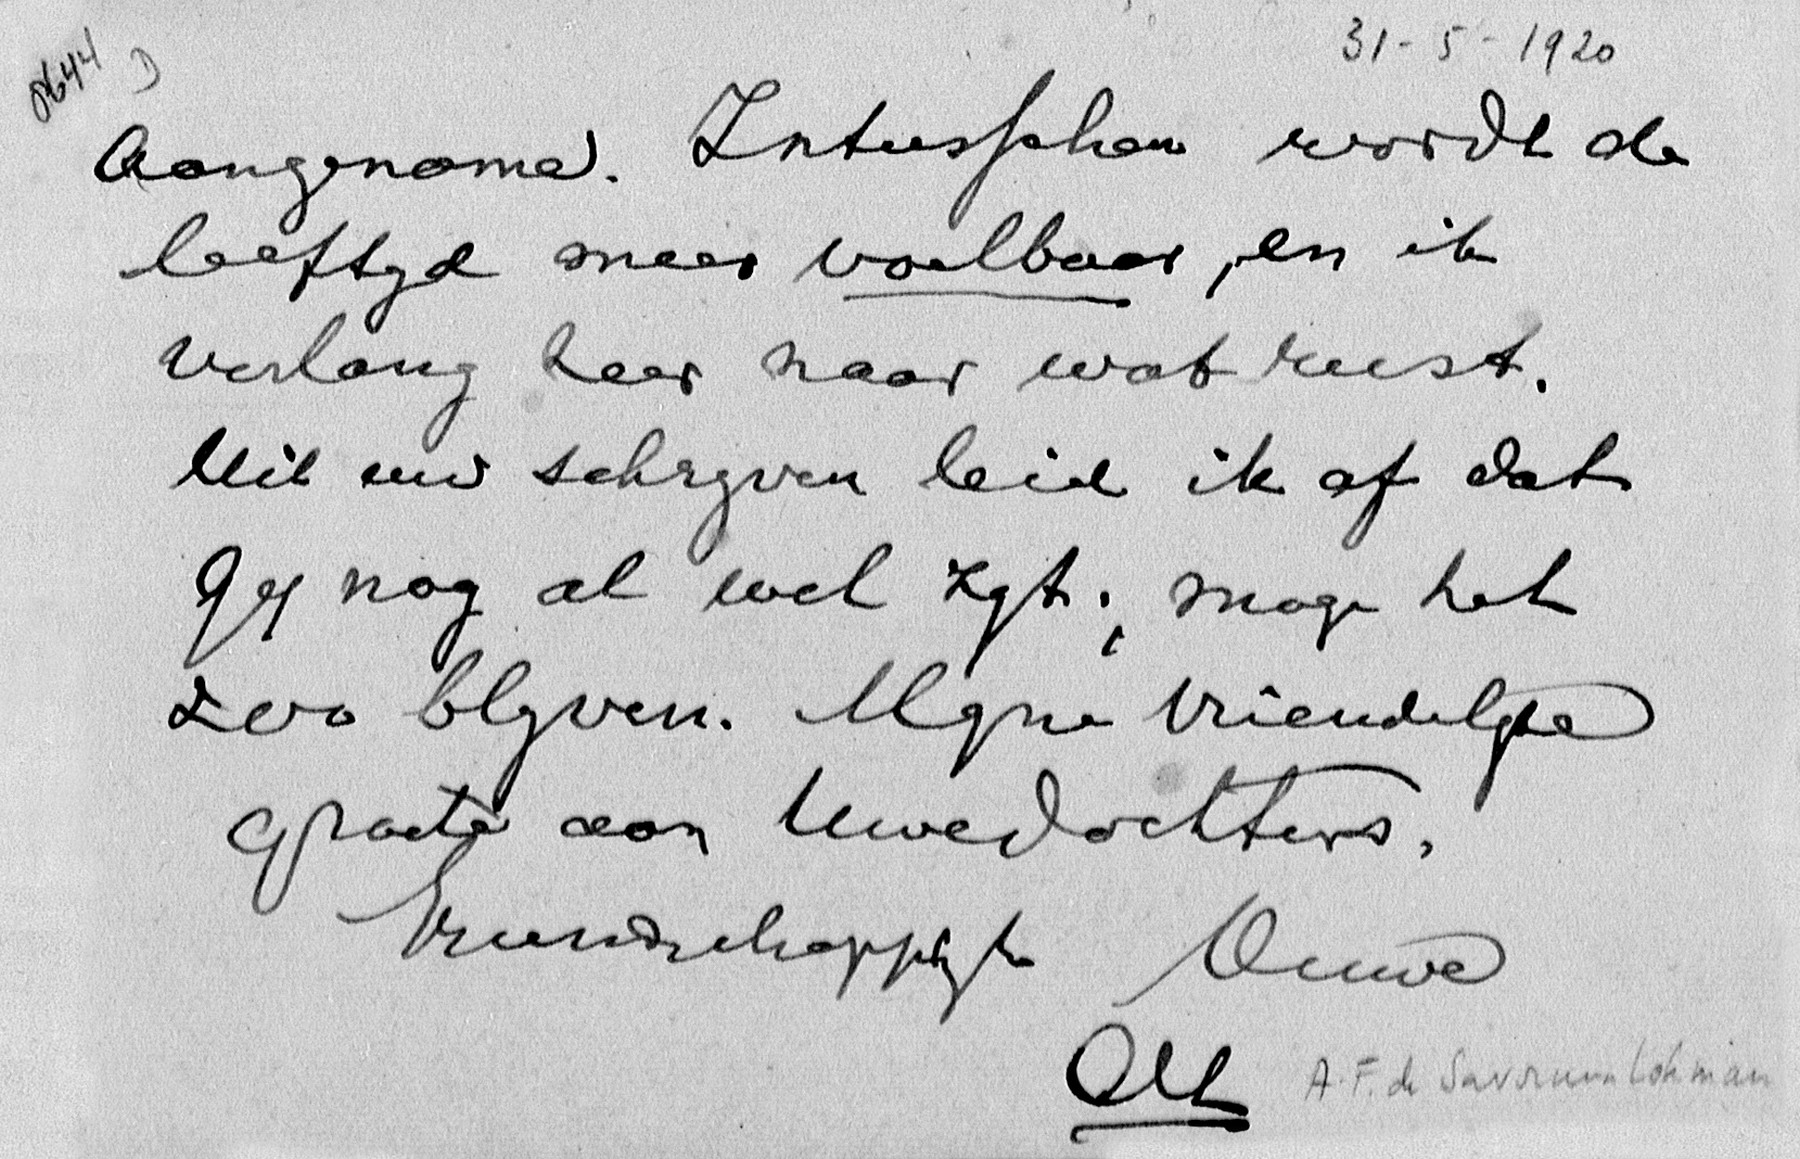 0644 D
31-5-1920
Aangename. Intusschen wordt de
leeftyd meer voelbaar, en ik
verlang zeer naar wat rust.
Uit uw schryven leid ik af dat
Gy nog al wel zyt; moge het
zoo blyven. Myne vriendelyke
groete aan Uwe dochters.
Vriendschappelyk Uwe
A. F. de Savornin Lohman